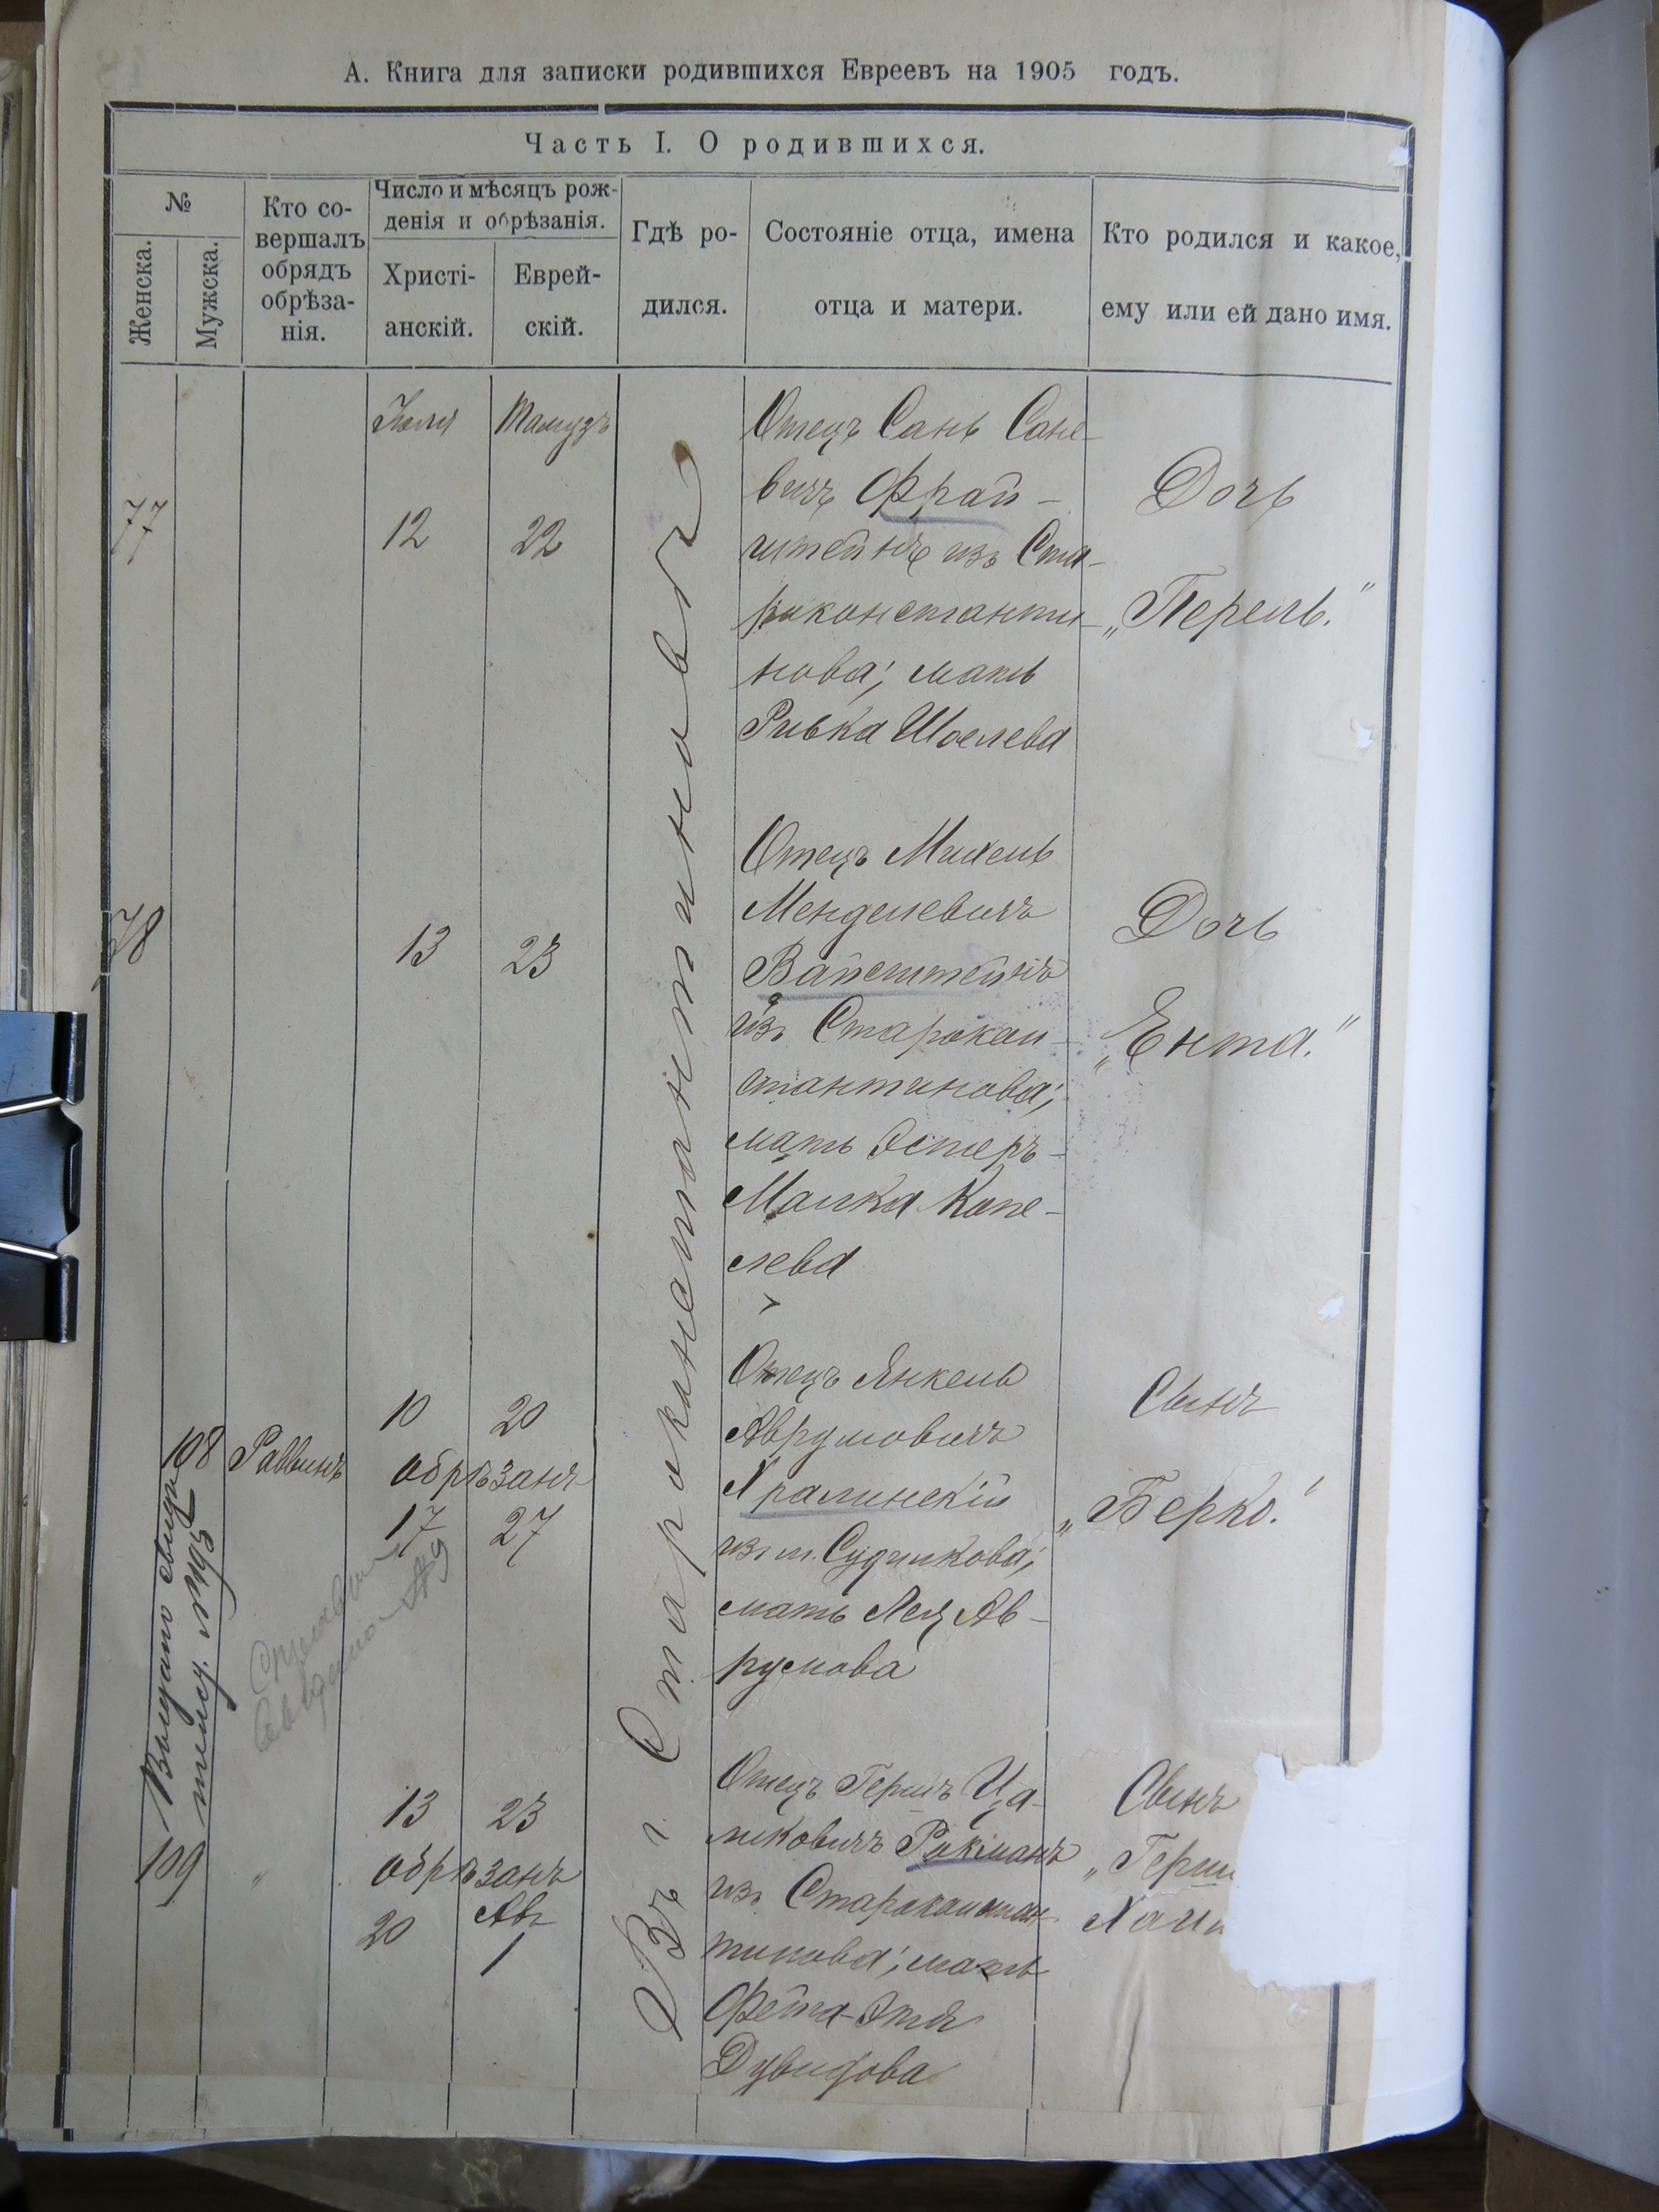 А. Книга для записки родившихся Евреевъ на 1905 годъ.
Часть I. О родившихся.
№
Женска.
Мужска.
Кто со-
вершалъ
обрядъ
обрѣза-
нія.
Число и мѣсяцъ рож-
денія и обрѣзанія.
Христі-
анскій.
Еврей-
скій.
Гдѣ ро-
дился.
Состояніе отца, имена
отца и матери.
Кто родился и какое,
ему или ей дано имя.
Въ г. Староконстантиновѣ
77
Іюля
12
Тамузъ
22
Отецъ Сань Сане-
вичъ Фрай-
штейнъ из Ста-
роконстанти-
нова; мать
Ривка Шоелева
Дочь
„Перель."
78
13
23
Отецъ Михель
Менделевичъ
Вайсштейнъ
изъ Старокон-
стантинова;
мать Эстеръ-
Малка Копе-
лева
Дочь
„Ента."
108
Раввинъ
10
20
обрѣзанъ
17
27
Отецъ Янкель
Аврумовичъ
Хралинскій
из м. Судилкова;
мать Лея Ав-
румова
Сынъ
„Берко."
109
"
13
23
обрѣзанъ
20
Авъ
1
Отецъ Гершъ Ца-
ликовичъ Рикманъ
изъ Староконстан-
тинова; мать
Фейга-Этя
Дувидова
Сынъ
„Герш